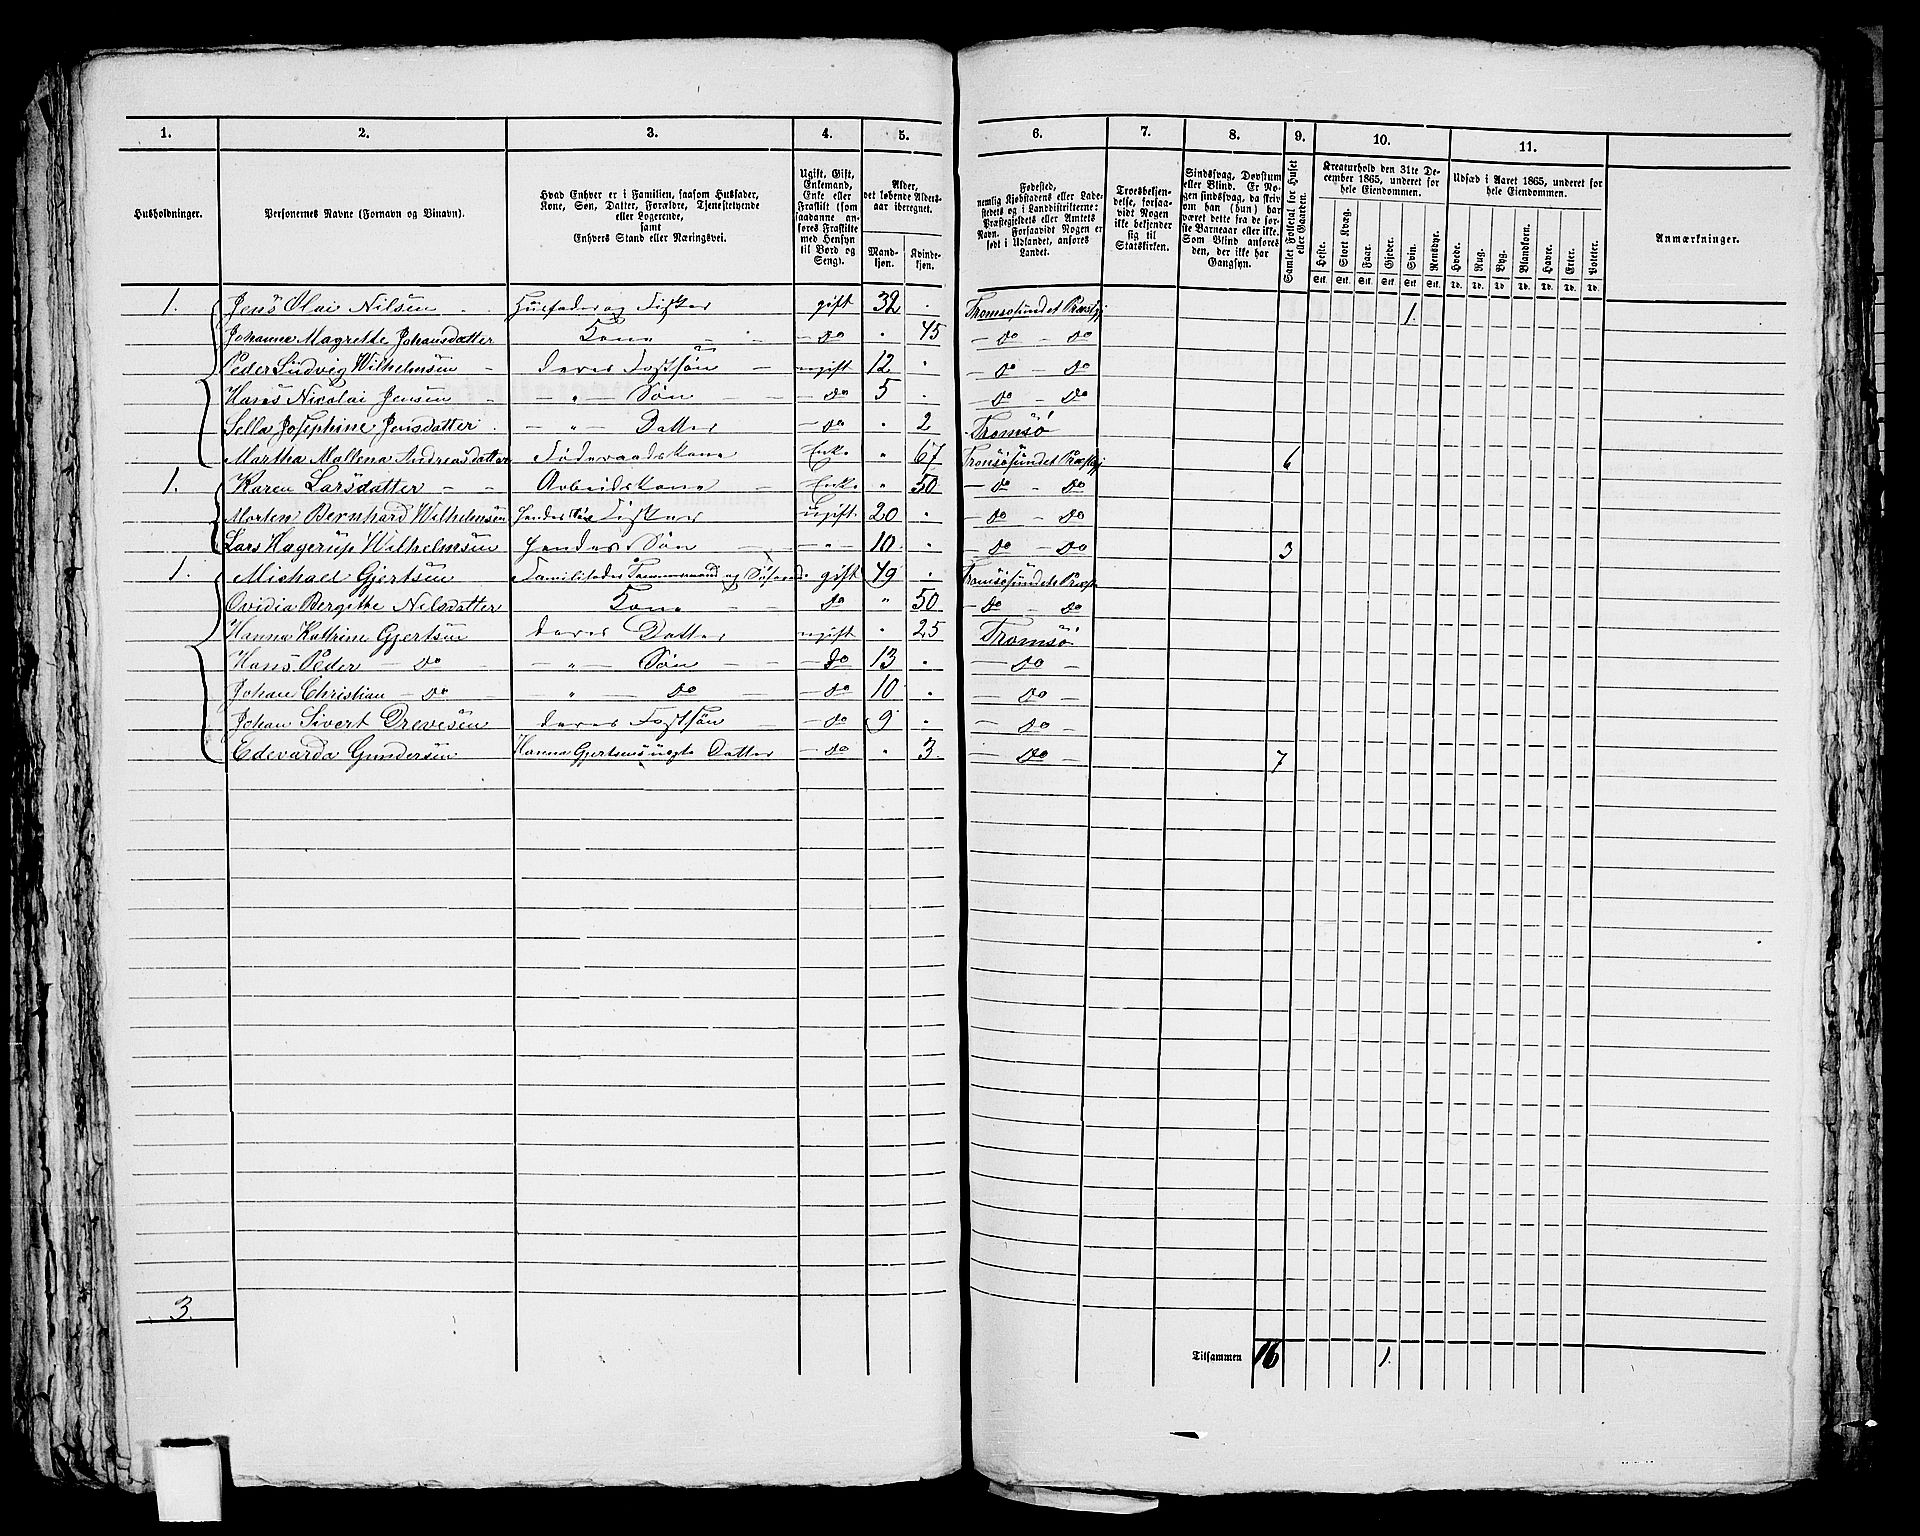 1. 2. 3. 4. 5. 6. 7. 8. 9. 10. 11.
Husholdninger.
Personernes Navne (Fornavn og Binavn).
Hvad Enhver er i Familien, saasom Husfader,
Kone, Søn, Datter, Forældre, Tjenestetyende
eller Logerende,
samt
Enhvers Stand eller Næringsvei.
Ugift, Gift,
Enkemand,
Enke eller
Fraskilt (som
saadanne an-
føres Fraskilte
med Hensyn
til Bord og
Seng).
Alder,
det løbende Alders-
aar iberegnet.
Mand-
kjøn.
Kvinde-
kjøn.
Fødested,
nemlig Kjøbstadens eller Lade-
stedets og i Landdistrikterne:
Præstegjeldets eller Amtets
Navn. Forsaavidt Nogen er
født i Udlandet, anføres
Landet.
Troesbekjen-
delse, forsaa-
vidt Nogen
ikke bekjender
sig til
Statskirken.
Sindssvag, Døvstum
eller Blind. Er No-
gen sindssvag, da skriv
om han (hun) har
været dette fra de før-
ste Barneaar eller ikke.
Som Blind anføres
den, der ikke har
Gangsyn.
Samlet Folketal for Huset
eller Gaarden.
Kreaturhold den 31te De-
cember 1865, underet for
hele Eiendommen.
Heste. Stort Kvæg. Faar. Gjeder. Svin. Rensdyr.
Stk. Stk. Stk. Stk. Stk. Stk.
Udsæd i Aaret 1865, underet for
hele Eiendommen.
Hvede. Rug. Byg. Blandkorn. Havre. Erter. Poteter.
Td. Td. Td. Td. Td. Td. Td.
Anmærkninger.
1. Jens Olai Nilsen Husfader og Fisker gift 32 . Tromsøsundet Præstgj 1.
Johanne Magrethe Johansdatter Kone do . 45 do do
Peder Ludvig Wilhelmsen deres Fostsøn ugift 12 . do do
Hans Nicolai Jensen " Søn do 5 . do do
Sella Josephine Jensdatter " Datter do . 2 Tromsø
Martha Mallena Andreasdatter Føderaadskone Enke " 67 Tromsøsundet Præstgj 6
1. Karen Larsdatter Arbeidskone Enke " 50 do do
Morten Bernhard Wilhelmsen hendes Søn Fisker Ugift 20 . do do
Lars Hagerup Wilhelmsen hendes Søn " 10 . do do 3
1. Michael Gjertsen Familifader Tømmermand og gift 49 . Tromsøsundets Præst
Ovidia Bergithe Nilsdatter Kone do " 50 do do
Hanna Kathrine Gjertsen deres Datter ugift " 25 Tromsø
Hans Peder do " Søn do 13 . do
Johan Christian do " do do 10 . do
Johan Sivert Drevesen deres Fostsøn do 9 . do
Edevarda Gundersen Hanna Gjertsens uægte Datter do . 3 do 7
3.
Tilsammen 16 1.